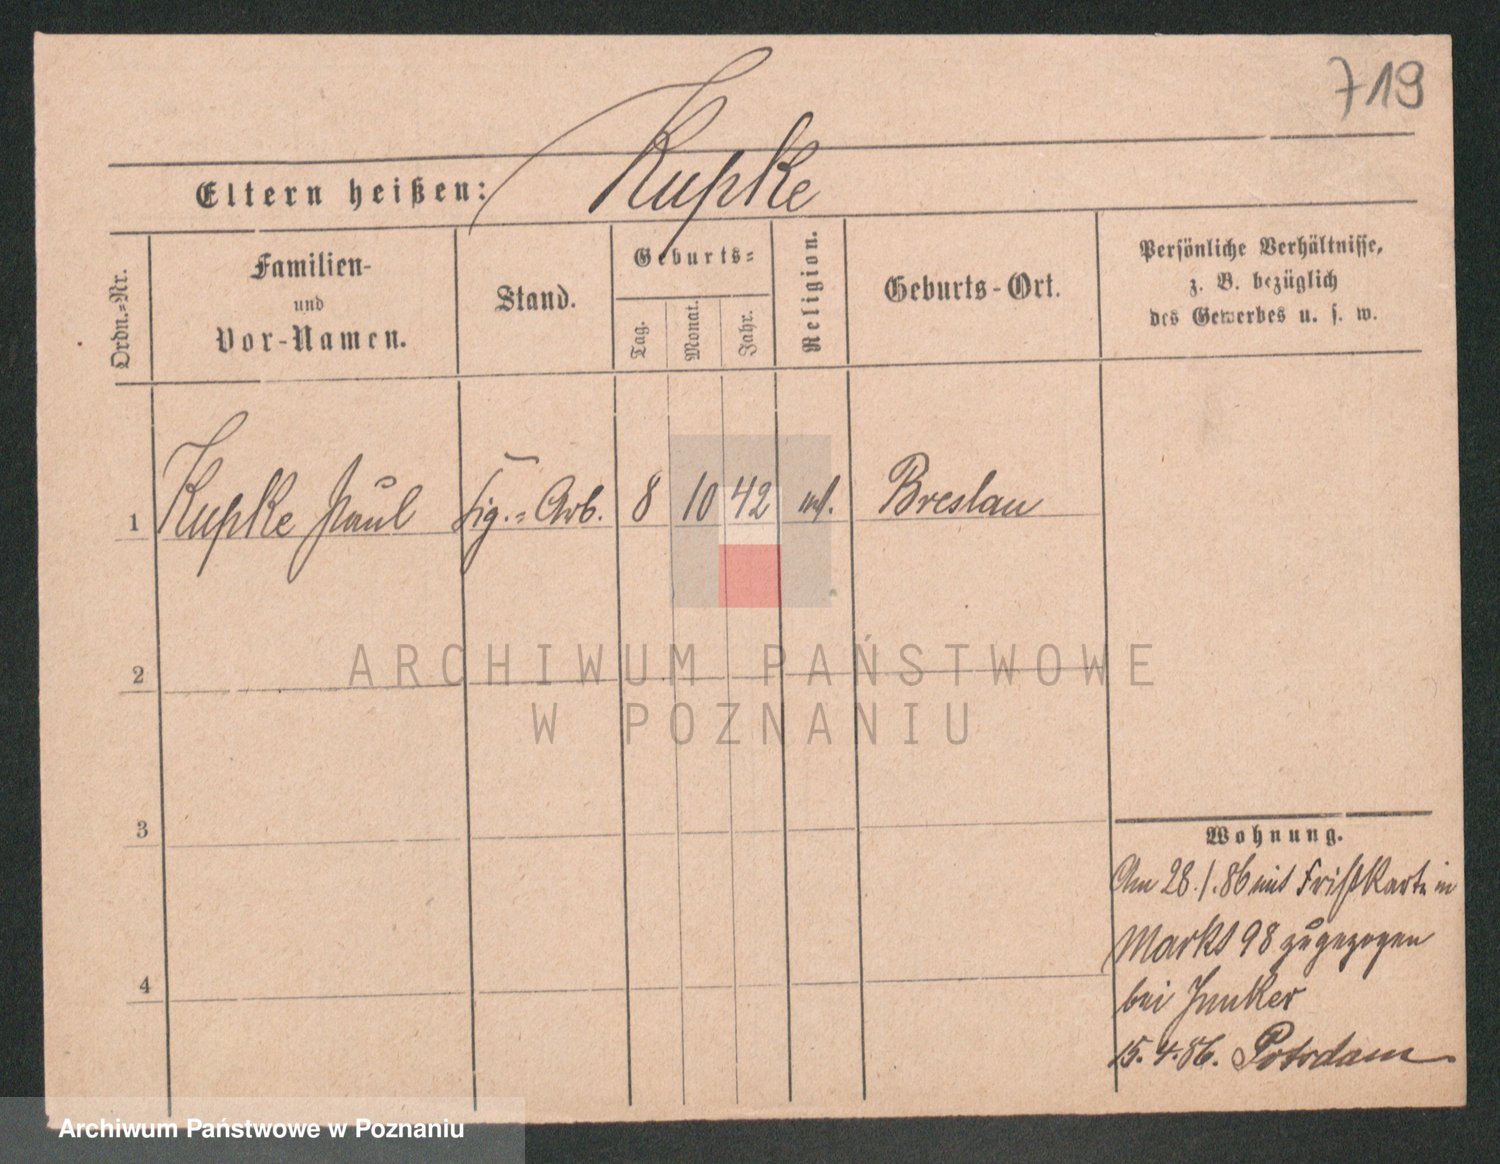 719
Eltern heißen: Kupke
Ordn.-Nr.
Familien-
und
Vor-Namen.
Stand.
Geburts-
Tag.
Monat.
Jahr.
Religion.
Geburts-Ort.
Persönliche Verhältnisse,
z. B. bezüglich
des Gewerbes u. s. w.
1 Kupke Paul Zig.-Arb. 8 10 42 Breslau
2
3
4
ARCHIWUM PAŃSTWOWE
W POZNANIU
Wohnung.
Am 28./.86 mit Fristkarte in
Markt 98 zugezogen
bei Junker
15.4.86. Potsdam
Archiwum Państwowe w Poznaniu